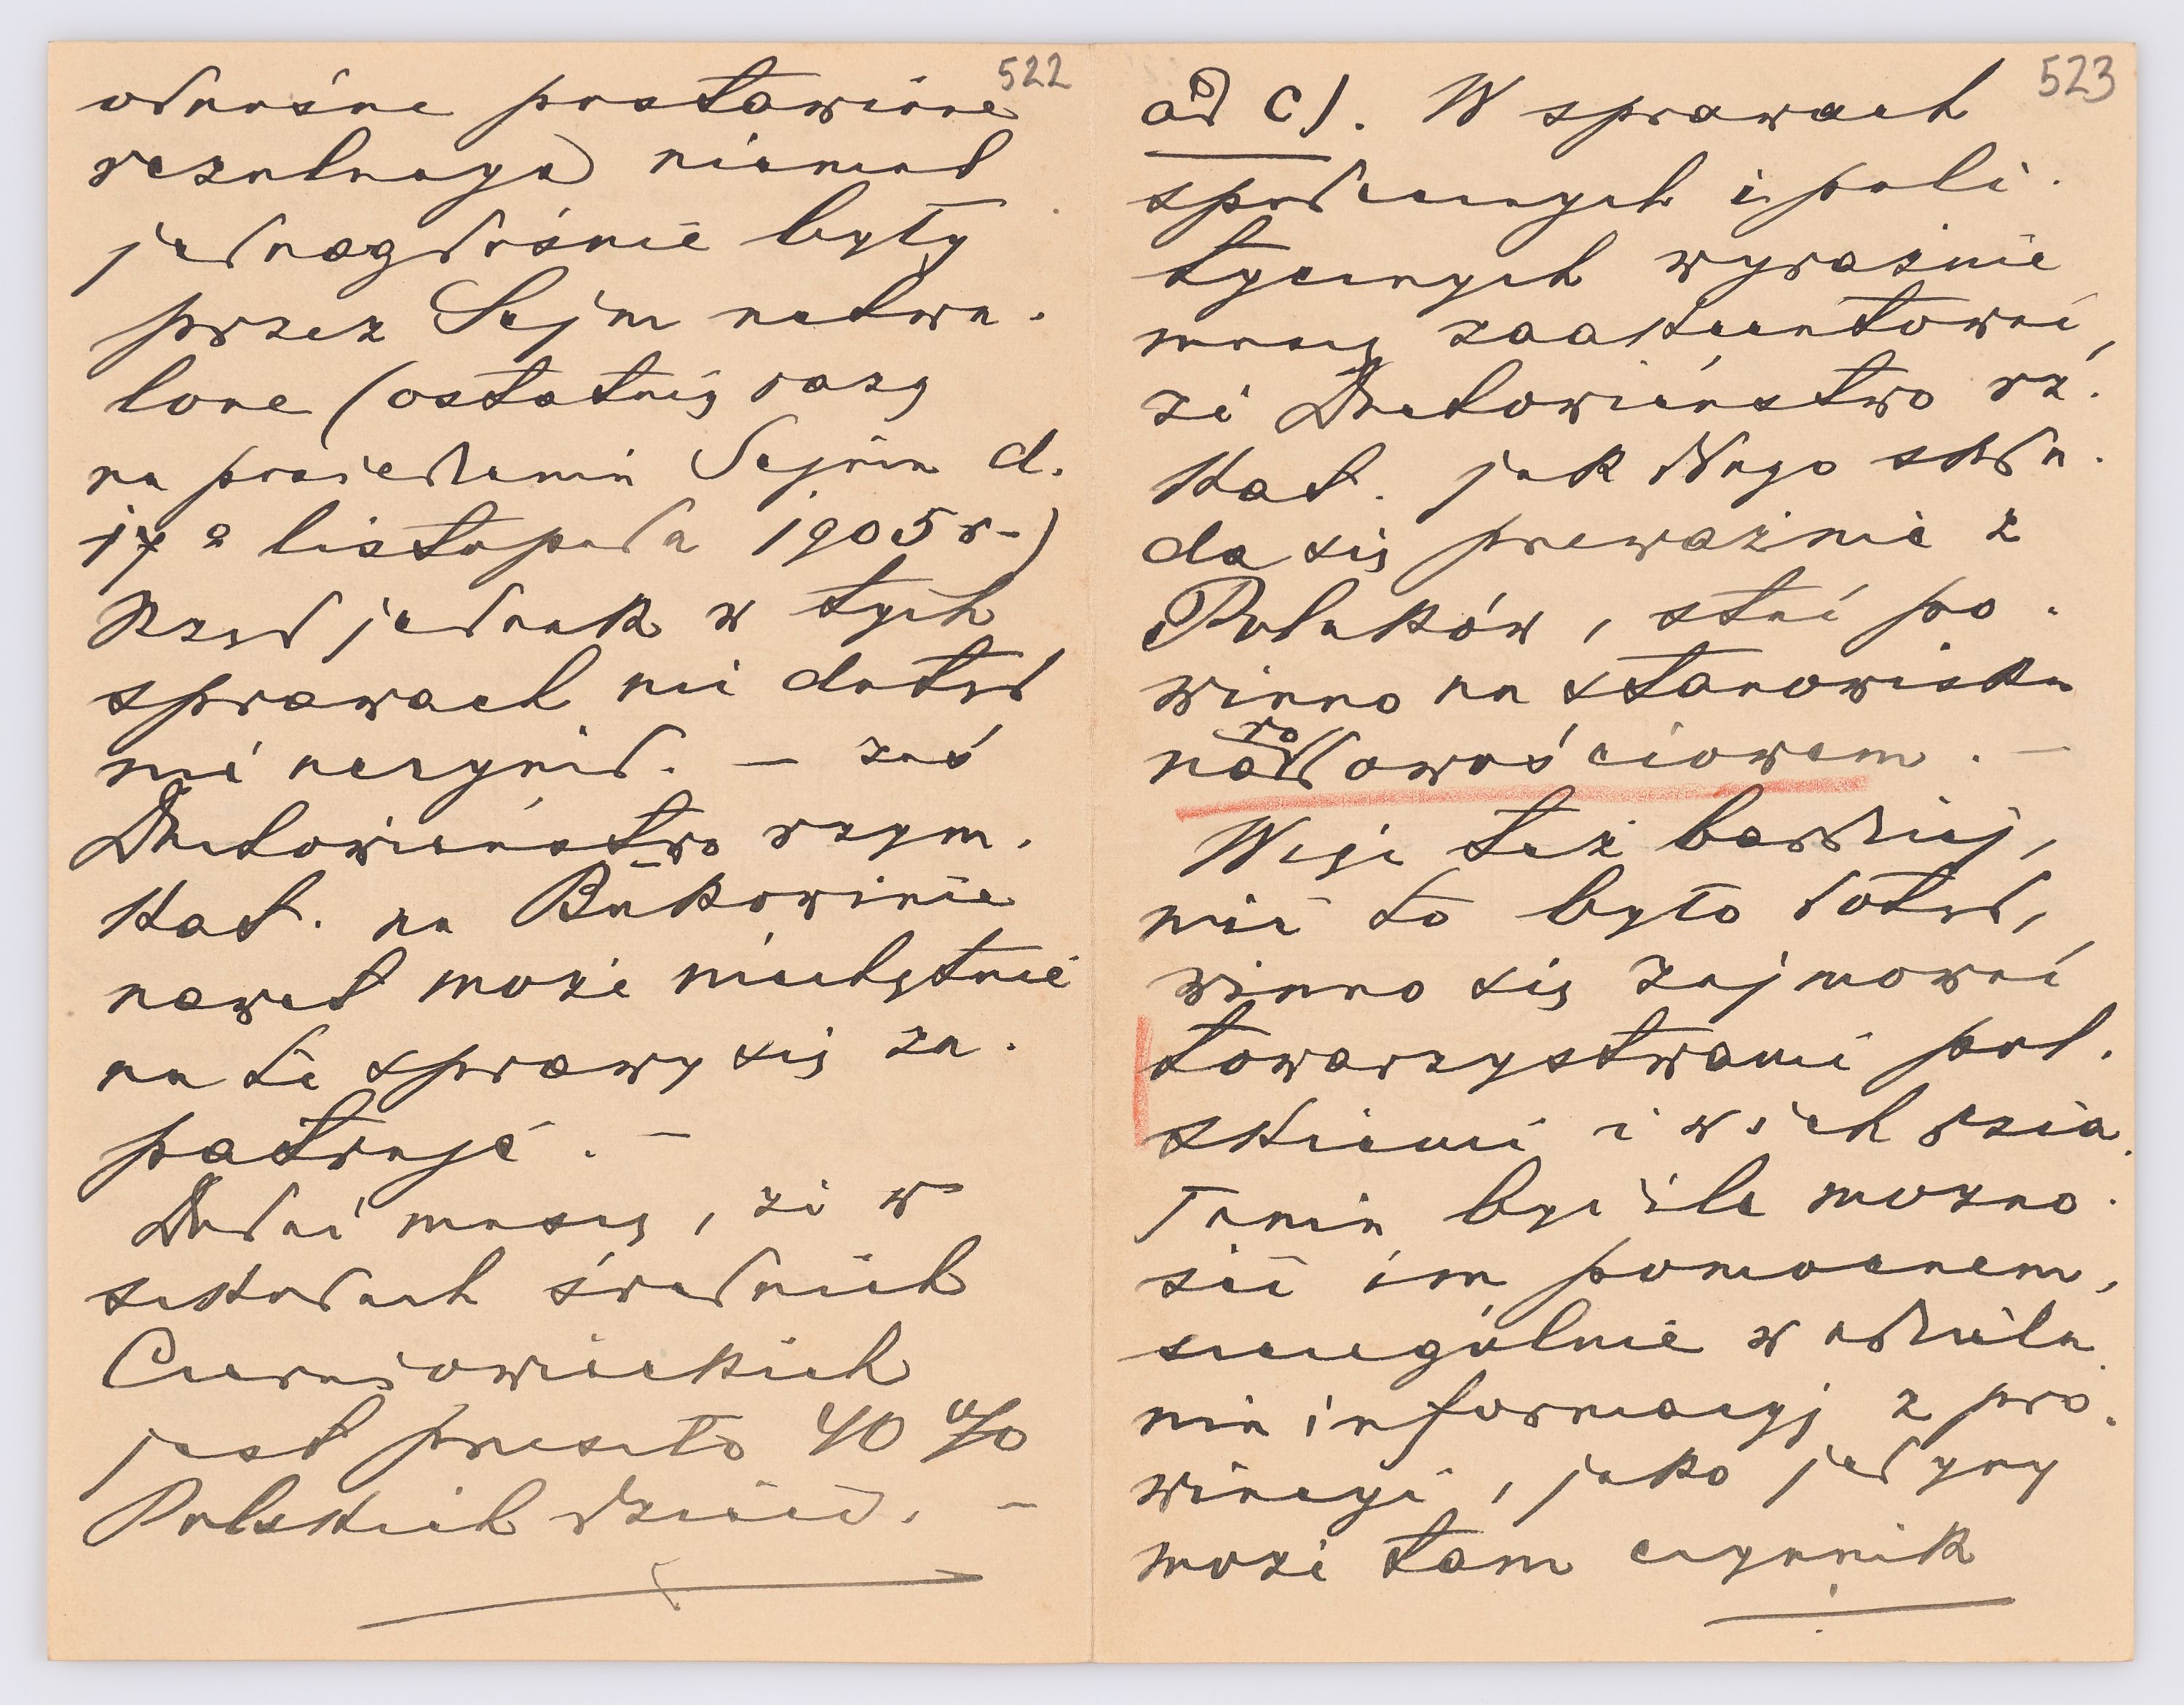 522
odnośne postawione
rezolucye) niemal
jednogłośnie były
przez Sejm uchwa-
lone (ostatnią razą
na posiedzeniu Sejmu d.
17 listopada 1905 r-)
Rząd jednak w tych
sprawach nic dotąd
nie uczynił. — zaś
Duchowieństwo rzym.
Kat. na Bukowinie
nawet może niechętnie
na te sprawy się za-
patruje. —
Dodać muszę, że w
szkołach średnich
Czerniowieckich
jest przeszło 40 %
Polskich dzieci. —
523
ad c). W sprawach
społecznych i poli-
tycznych wyraźnie
muszę zaakcentować,
że Duchowieństwo rz.
Kat. jak długo skła-
da się przeważnie z
Polaków, stać po-
winno na stanowisku
narodowościowem. —
Więc też bardziej,
niż to było dotąd,
winno się zajmować
towarzystwami pol-
skiemi i w ich dzia-
łaniu być ile możno-
ści im pomocnem,
szczególnie w udziela-
niu informacyj z pro-
wincyi, jako jedyny
może tam czynnik